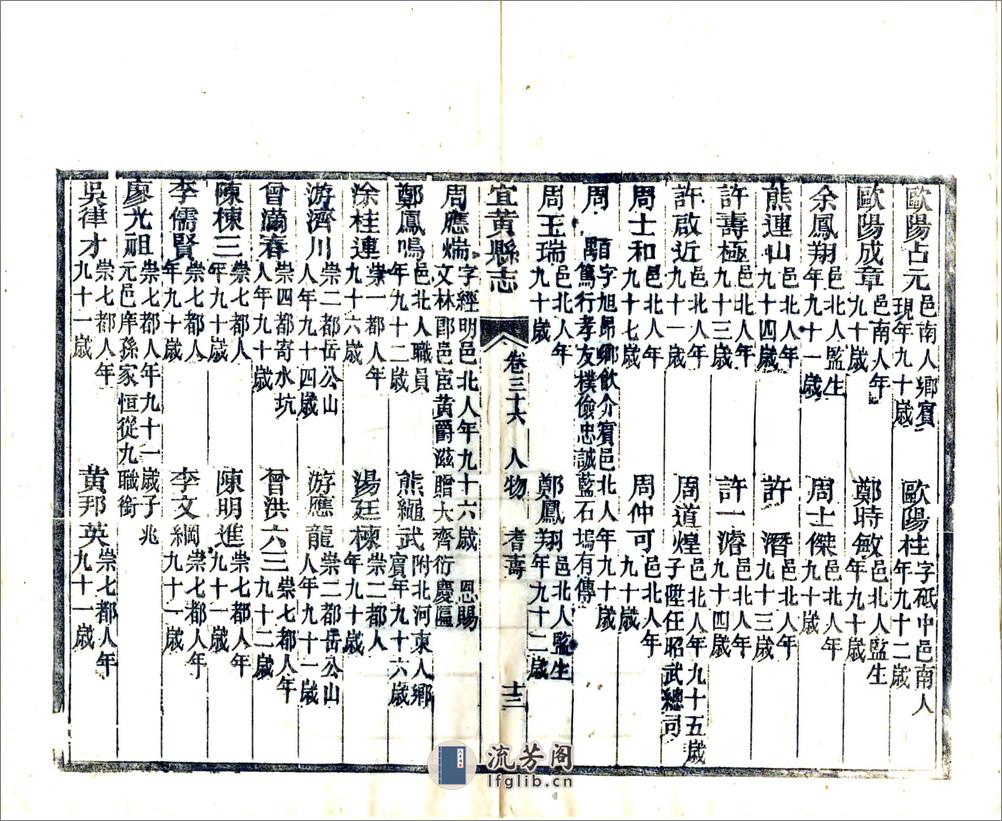 歐陽占元邑南人鄉賓現年九十歲 歐陽桂字砥中邑南人年九十二歲
歐陽成章邑南人年九十歲 鄭時敏邑北人監生年九十歲
余鳳翔邑北人監生年九十一歲 周士傑邑北人年九十一歲
熊連山邑北人年九十四歲 許潛邑北人年九十三歲
許壽極邑北人年九十三歲 許一濬邑北人年九十四歲
許啟近邑北人年九十一歲 周道煌邑北人年九十五歲子陞任昭武總司
周士和邑北人年九十七歲 周仲可邑北人年九十歲
周顒字旭昴鄉飲介賓邑北人年九十歲篤行孝友樸儉忠誠藍石塢有傳
周玉瑞邑北人年九十歲 鄭鳳翔邑北人監生年九十二歲
宜黃縣志 卷三十六 人物 耆壽 十三
周應煓字經明邑北人年九十六歲 恩賜文林郎邑宦黃爵滋贈大齊衍慶匾
鄭鳳鳴邑北人職員年九十二歲 熊繩武附北河東人鄉賓年九十六歲
涂桂連崇一都人年九十六歲 湯廷棟崇二都人年九十歲
游濟川崇二都岳公山人年九十四歲 游應龍崇二都岳公山人年九十一歲
曾滿春崇四都寄水坑人年九十歲 曾洪六三崇七都人年九十二歲
陳棟三崇七都人年九十一歲 陳明進崇七都人年九十一歲
李儒賢崇七都人年九十歲 李文綱崇七都人年九十一
廖光祖崇七都人年九十一歲子兆元邑庠孫家恒從九職銜
吳律才崇七都人年九十一歲 黃邦英崇七都人年九十一歲
流芳阁
lfglib.cn